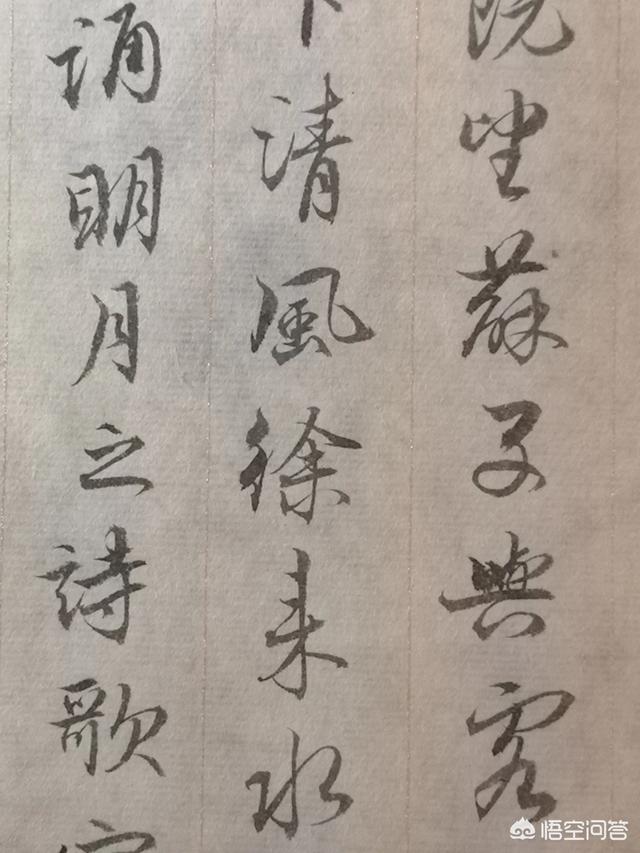 既望蘇子與客
下清風徐来水
誦明月之詩歌窈
悟空问答